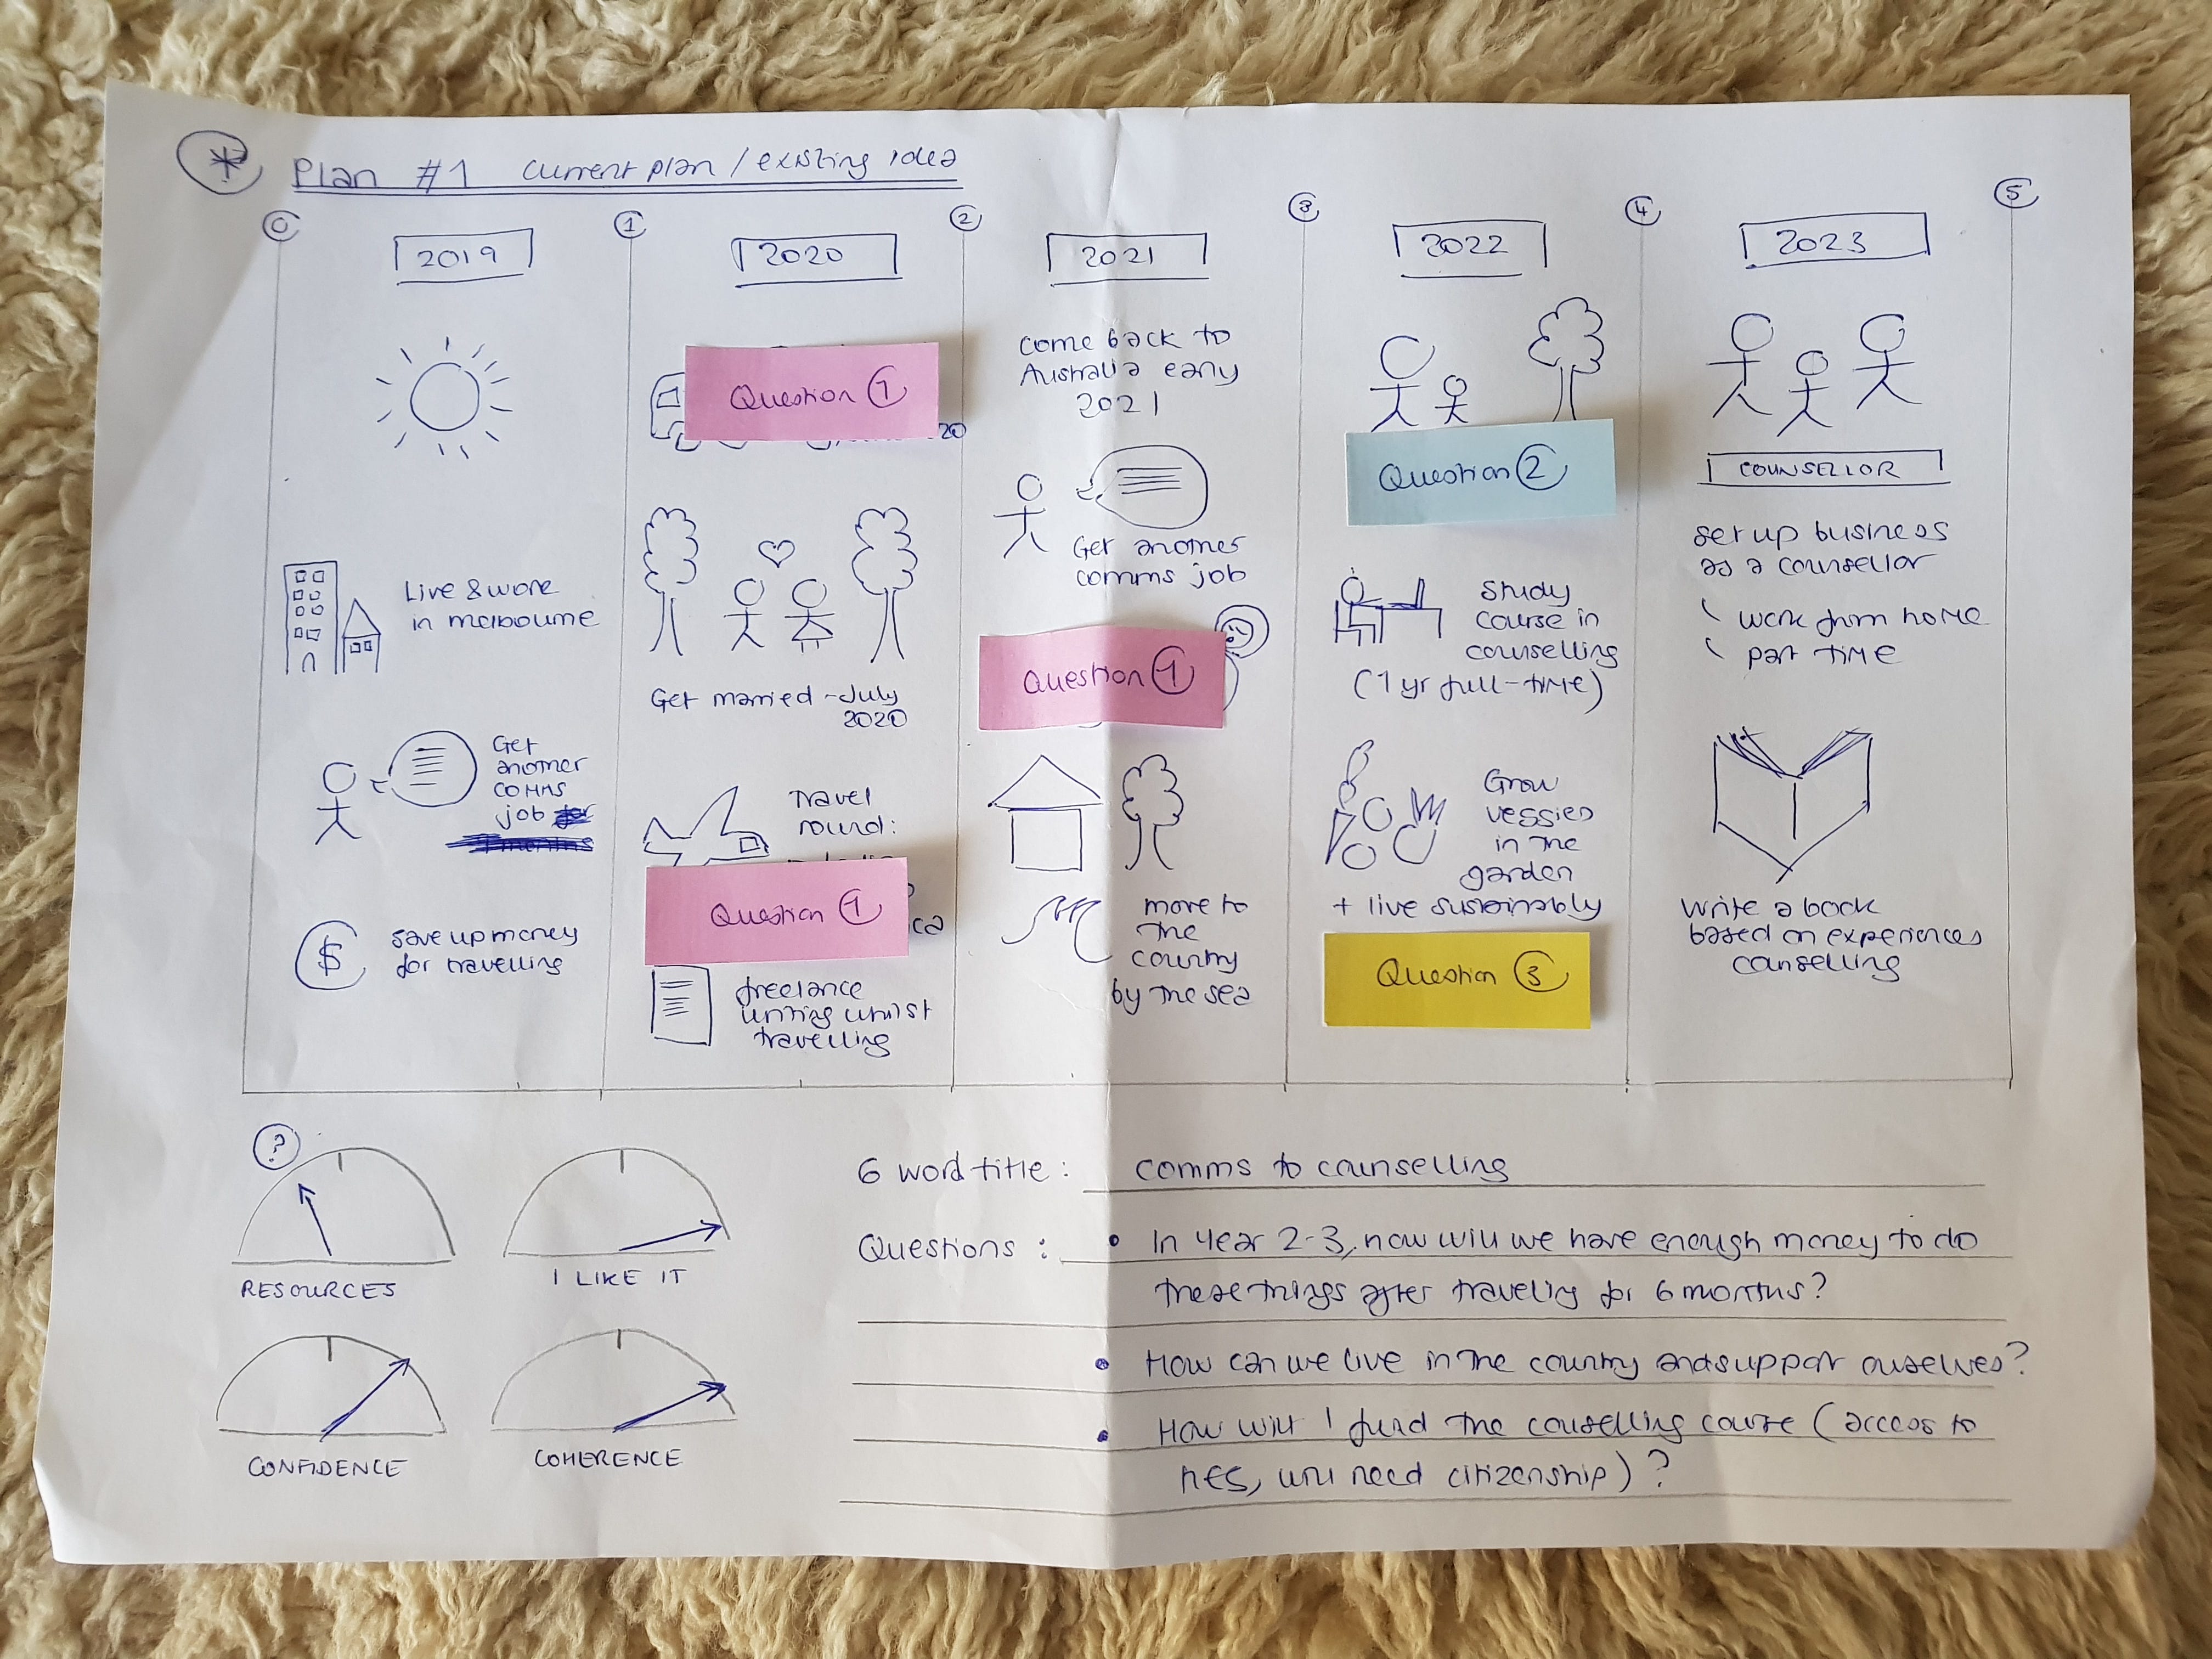 * Plan #1 current plan / existing idea
0 1 2 3 4 5
2019
Live & work
in melbourne
Get
another
comms
job
save up money
for travelling
2020
Question 1
20
Get married - July
2020
Travel
round:
Question 1
ca
freelance
writing whilst
travelling
2021
come back to
Australia early
2021
Get another
comms job
Question 1
move to
the
country
by the sea
2022
Question 2
study
course in
counselling
(1 yr full-time)
Grow
veggies
in the
garden
+ live sustainably
Question 3
2023
COUNSELLOR
set up business
as a counsellor
work from home
part time
write a book
based on experiences
counselling
?
RESOURCES
I LIKE IT
CONFIDENCE
COHERENCE
6 word title: comms to counselling
Questions: • In year 2-3, how will we have enough money to do
these things after traveling for 6 months?
• How can we live in the country and support ourselves?
• How will I fund the couselling course (access to
HES, will need citizenship)?